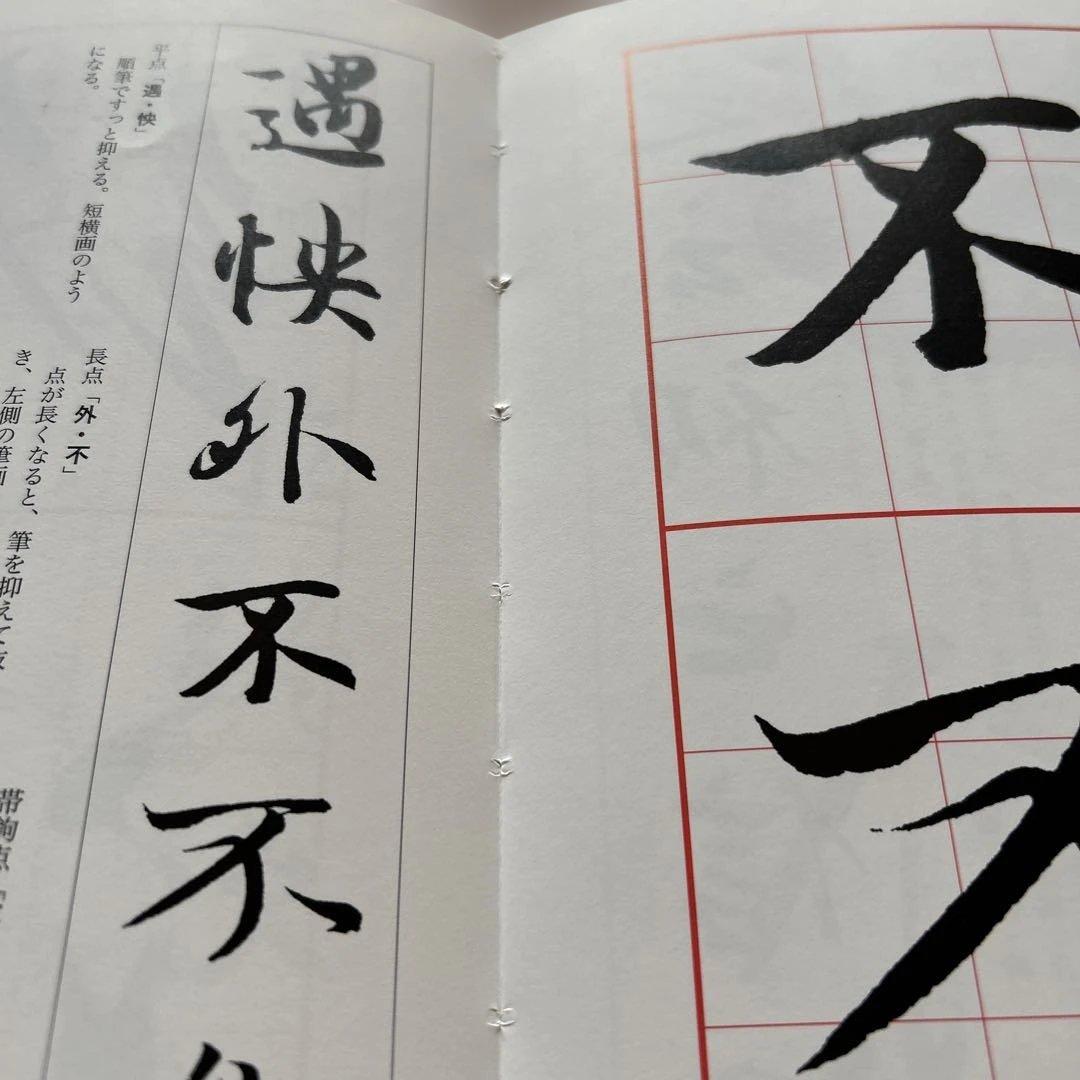 不
不
遇怏外不不
平点「遇・怏」
順筆ですっと抑える。短横画のよう
になる。
長点「外・不」
点が長くなると、筆を抑えて
き、左側の筆画
帯鉤点「